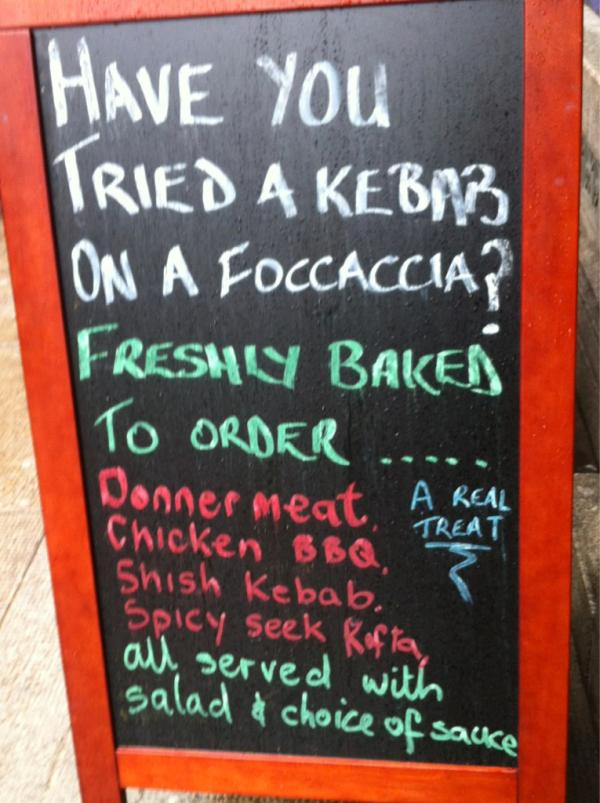 HAVE YOU
TRIED A KEBAB
ON A FOCCACCIA?
FRESHLY BAKED
TO ORDER .....
Donner meat,
Chicken BBQ,
Shish Kebab.
Spicy seek Kofta,
A REAL
TREAT
all served with
salad & choice of sauce